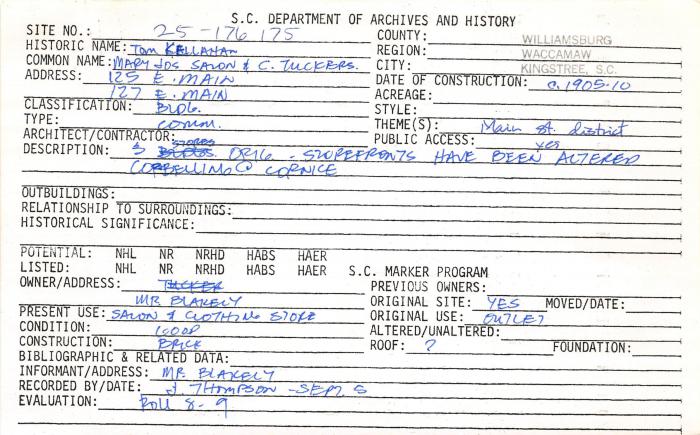 S.C. DEPARTMENT OF ARCHIVES AND HISTORY
SITE NO.: 25-176 175
COUNTY: WILLIAMSBURG
HISTORIC NAME: TOM KELLAHAN
REGION: WACCAMAW
COMMON NAME: MARY JOS SALON & C. TUCKERS.
CITY: KINGSTREE, S.C.
ADDRESS: 125 E. MAIN
DATE OF CONSTRUCTION: c. 1905-10
127 E. MAIN
ACREAGE:
CLASSIFICATION: BLDG.
STYLE:
TYPE: comm.
THEME(S): Main st. district
ARCHITECT/CONTRACTOR:
PUBLIC ACCESS: yes
STORES
DESCRIPTION: 3 BLDGS. ORIG - STOREFRONTS HAVE BEEN ALTERED
CORBELLING @ CORNICE
OUTBUILDINGS:
RELATIONSHIP TO SURROUNDINGS:
HISTORICAL SIGNIFICANCE:
POTENTIAL: NHL NR NRHD HABS HAER
LISTED: NHL NR NRHD HABS HAER S.C. MARKER PROGRAM
OWNER/ADDRESS: TUCKER
PREVIOUS OWNERS:
MR BLAKELY
ORIGINAL SITE: YES MOVED/DATE:
PRESENT USE: SALON & CLOTHING STORE
ORIGINAL USE: OUTLET
CONDITION: GOOD
ALTERED/UNALTERED:
CONSTRUCTION: BRICK
ROOF: ? FOUNDATION:
BIBLIOGRAPHIC & RELATED DATA:
INFORMANT/ADDRESS: MR. BLAKELY
RECORDED BY/DATE: J. THOMPSON - SEPT 5
EVALUATION: Roll 8-9